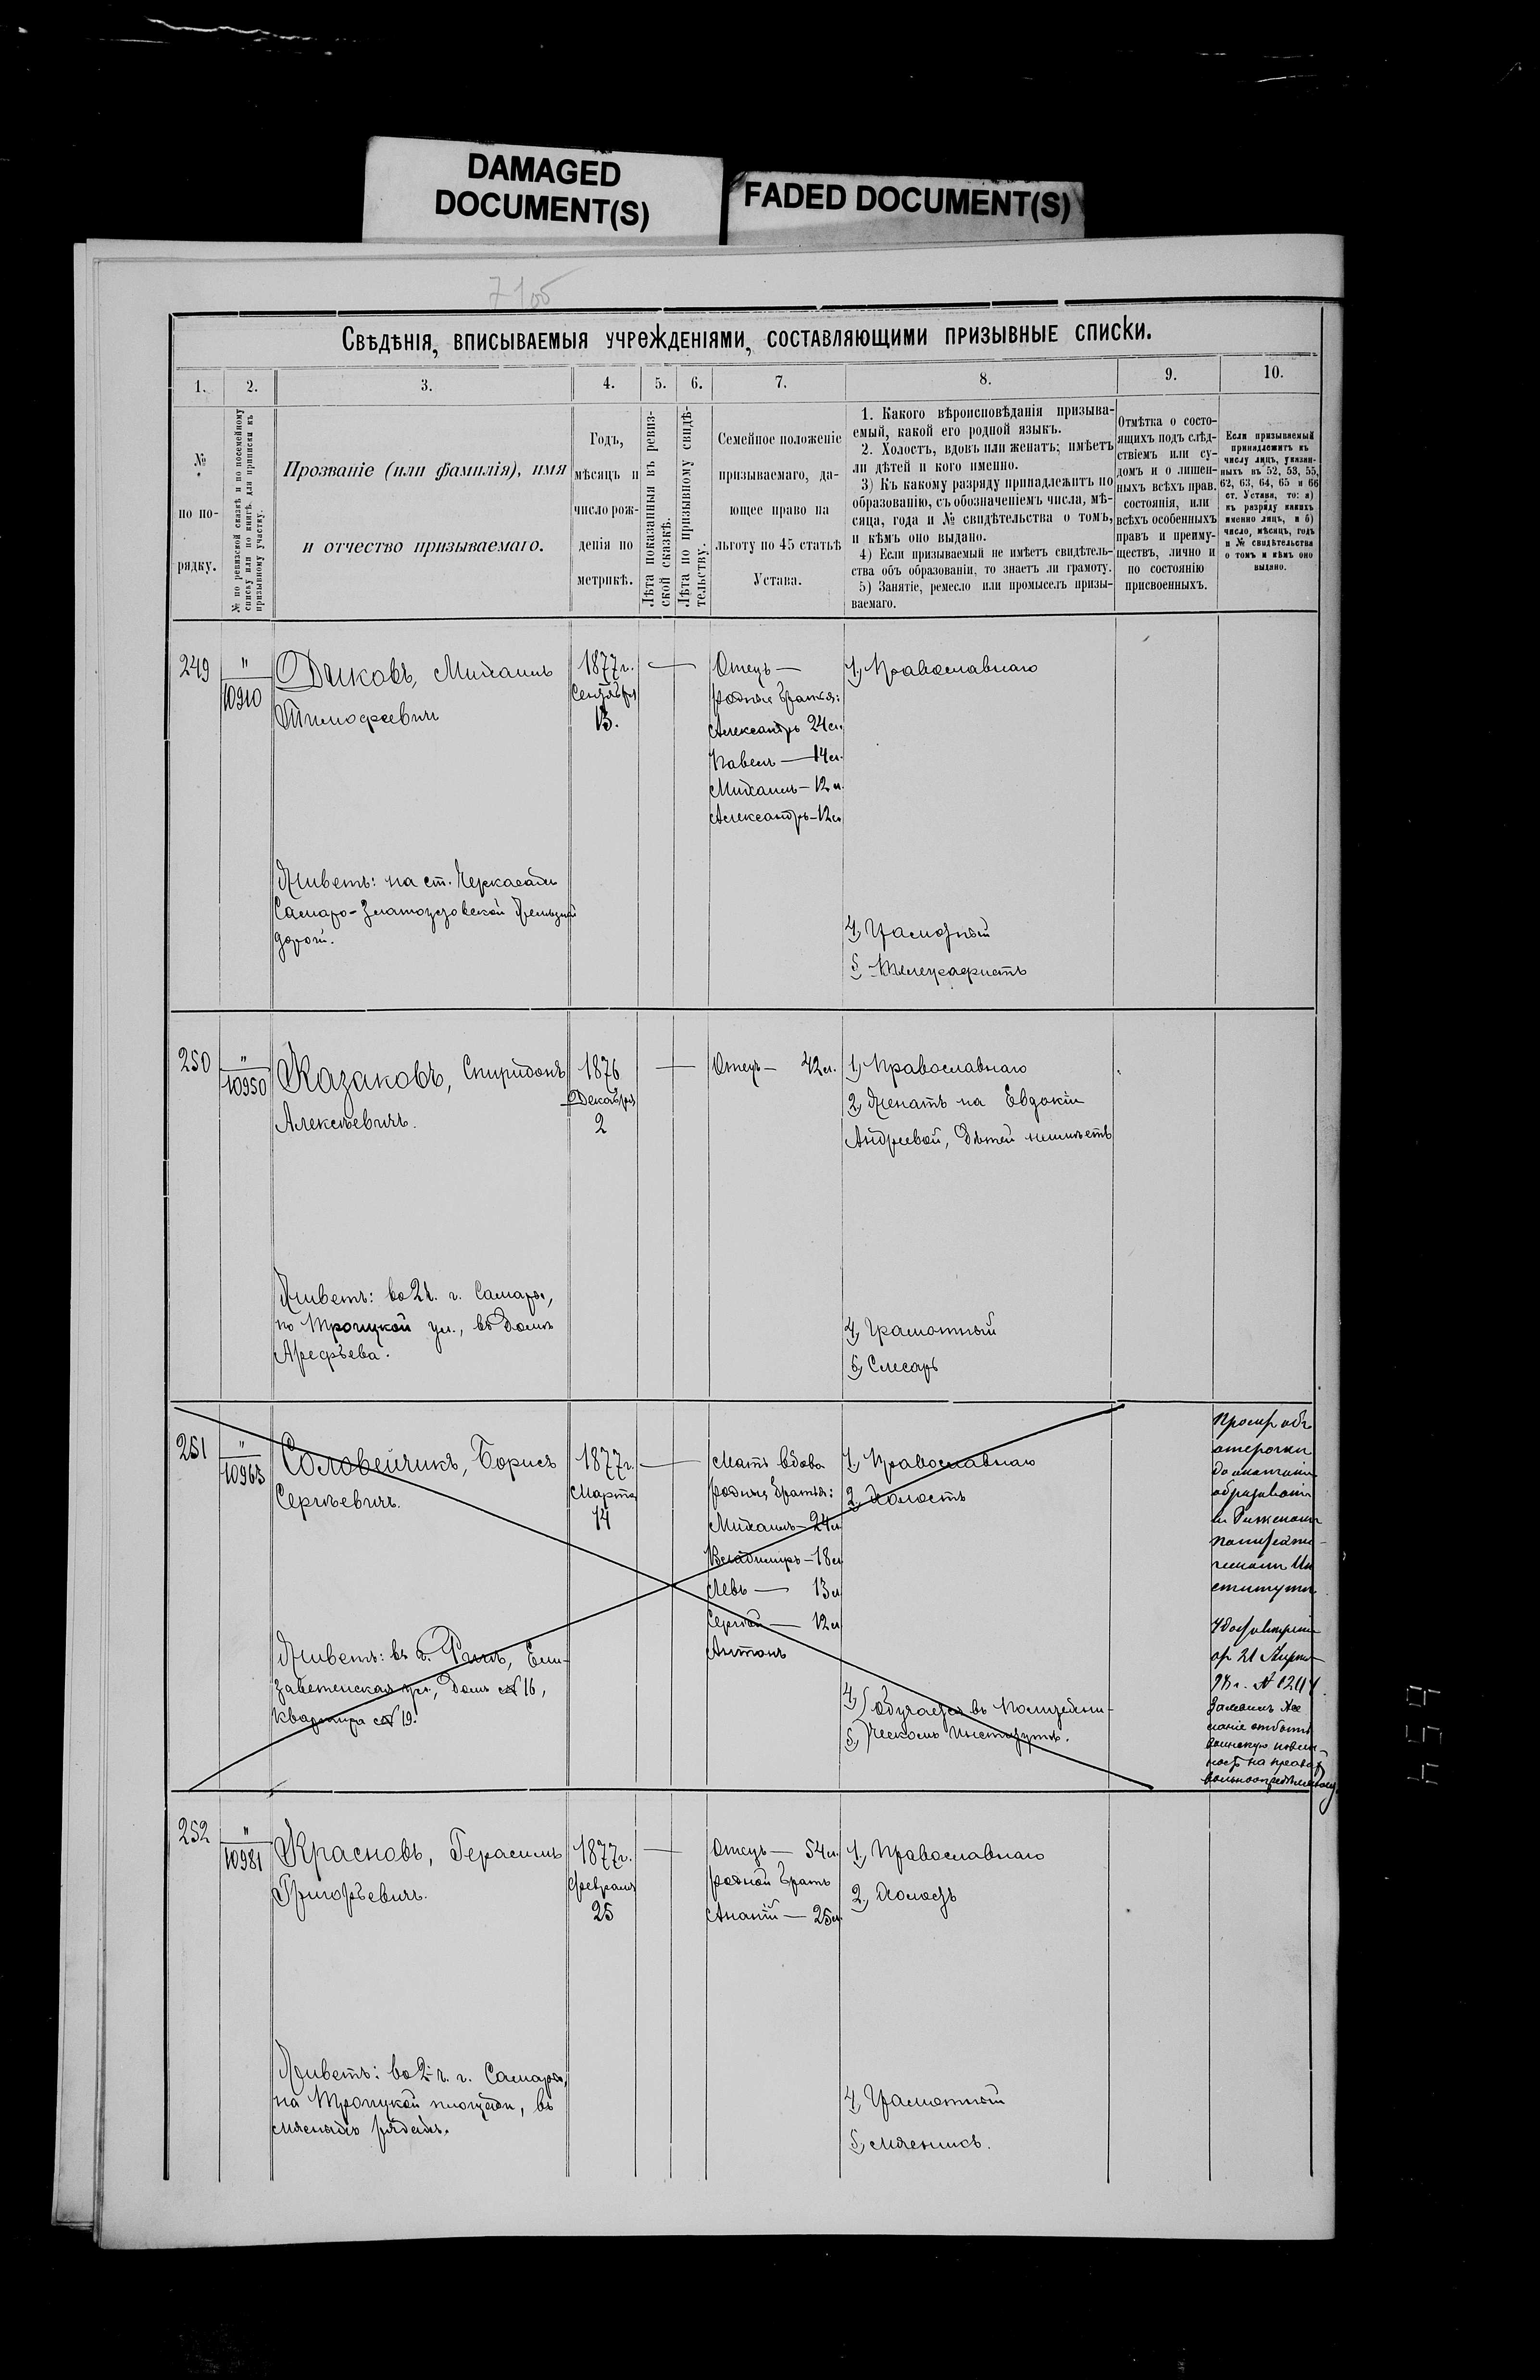 DAMAGED
DOCUMENT(S)
FADED DOCUMENT(S)
Свѣдѣнія, вписываемыя учрежденіями, составляющими призывные списки.
1.
2.
3.
4.
5.
6.
7.
8.
9.
10.
№
по по-
рядку.
№ по ревизской сказкѣ и по посемейному
списку или по книгѣ для приписки къ
призывному участку.
Прозваніе (или фамилія), имя
и отчество призываемаго.
Годъ,
мѣсяцъ и
число рож-
денія по
метрикѣ.
Лѣта показанныя въ ревиз-
ской сказкѣ.
Лѣта по призывному свидѣ-
тельству.
Семейное положеніе
призываемаго, да-
ющее право на
льготу по 45 статьѣ
Устава.
1. Какого вѣроисповѣданія призыва-
емый, какой его родной языкъ.
2. Холостъ, вдовъ или женатъ; имѣетъ
ли дѣтей и кого именно.
3) Къ какому разряду принадлежитъ по
образованію, съ обозначеніемъ числа, мѣ-
сяца, года и № свидѣтельства о томъ,
и кѣмъ оно выдано.
4) Если призываемый не имѣетъ свидѣтель-
ства объ образованіи, то знаетъ ли грамоту.
5) Занятіе, ремесло или промыселъ призы-
ваемаго.
Отмѣтка о состо-
ящихъ подъ слѣд-
ствіемъ или су-
домъ и о лишен-
ныхъ всѣхъ прав.
состоянія, или
всѣхъ особенныхъ
правъ и преиму-
ществъ, лично и
по состоянію
присвоенныхъ.
Если призываемый
принадлежитъ къ
числу лицъ, указан-
ныхъ въ 52, 53, 55,
62, 63, 64, 65 и 66
ст. Устава, то: а)
къ разряду какихъ
именно лицъ, и б)
число, мѣсяцъ, годъ
и № свидѣтельства
о томъ и кѣмъ оно
выдано.
249
"
10910
Дыковъ, Михаилъ
Тимофеевичъ
1877 г.
Сентября
13.
Отецъ —
родные братья:
Александръ 24 л.
Павелъ — 14 л.
Михаилъ — 12 л.
Александръ — 12 л.
1, Православнаго
Живетъ: на ст. Черкасады
Самаро-Златоустовской Желѣзной
дороги.
4, Грамотный
5, Телеграфистъ
250
"
10950
Казаковъ, Спиридонъ
Алексѣевичъ.
1876
Декабря
2
Отецъ — 42 л.
1, Православнаго
2, Женатъ на Евдокіи
Андреевой, дѣтей неимѣетъ
Живетъ: во 2 ч. г. Самары,
по Троицкой ул., въ домѣ
Арефьева.
4, Грамотный
5, Слесарь
251
"
10963
Соловейчикъ, Борисъ
Сергѣевичъ.
1877 г.
Марта
14
Мать вдова
родные братья:
Михаилъ — 24 л.
Владимиръ — 18 л.
Левъ — 13 л.
Сергѣй — 12 л.
Антонъ
1, Православнаго
2, Холостъ
Живетъ: въ г. Ригѣ, Ели-
заветенская ул., домъ № 16,
квартира № 19.
4,) обучается въ Политехни-
5,) ческомъ Институтѣ.
отсрочки
образованія
въ Рижскомъ
Политехни-
ческомъ Ин
ститутѣ.
252
"
10981
Красновъ, Герасимъ
Григорьевичъ.
1877 г.
Февраля
25
Отецъ — 54 л.
родной братъ
Ананій — 25 л.
1, Православнаго
2, Холостъ
Живетъ: во 2-ч. г. Самары,
на Троицкой площади, въ
мясныхъ рядахъ.
4, Грамотный
5, Мясникъ.